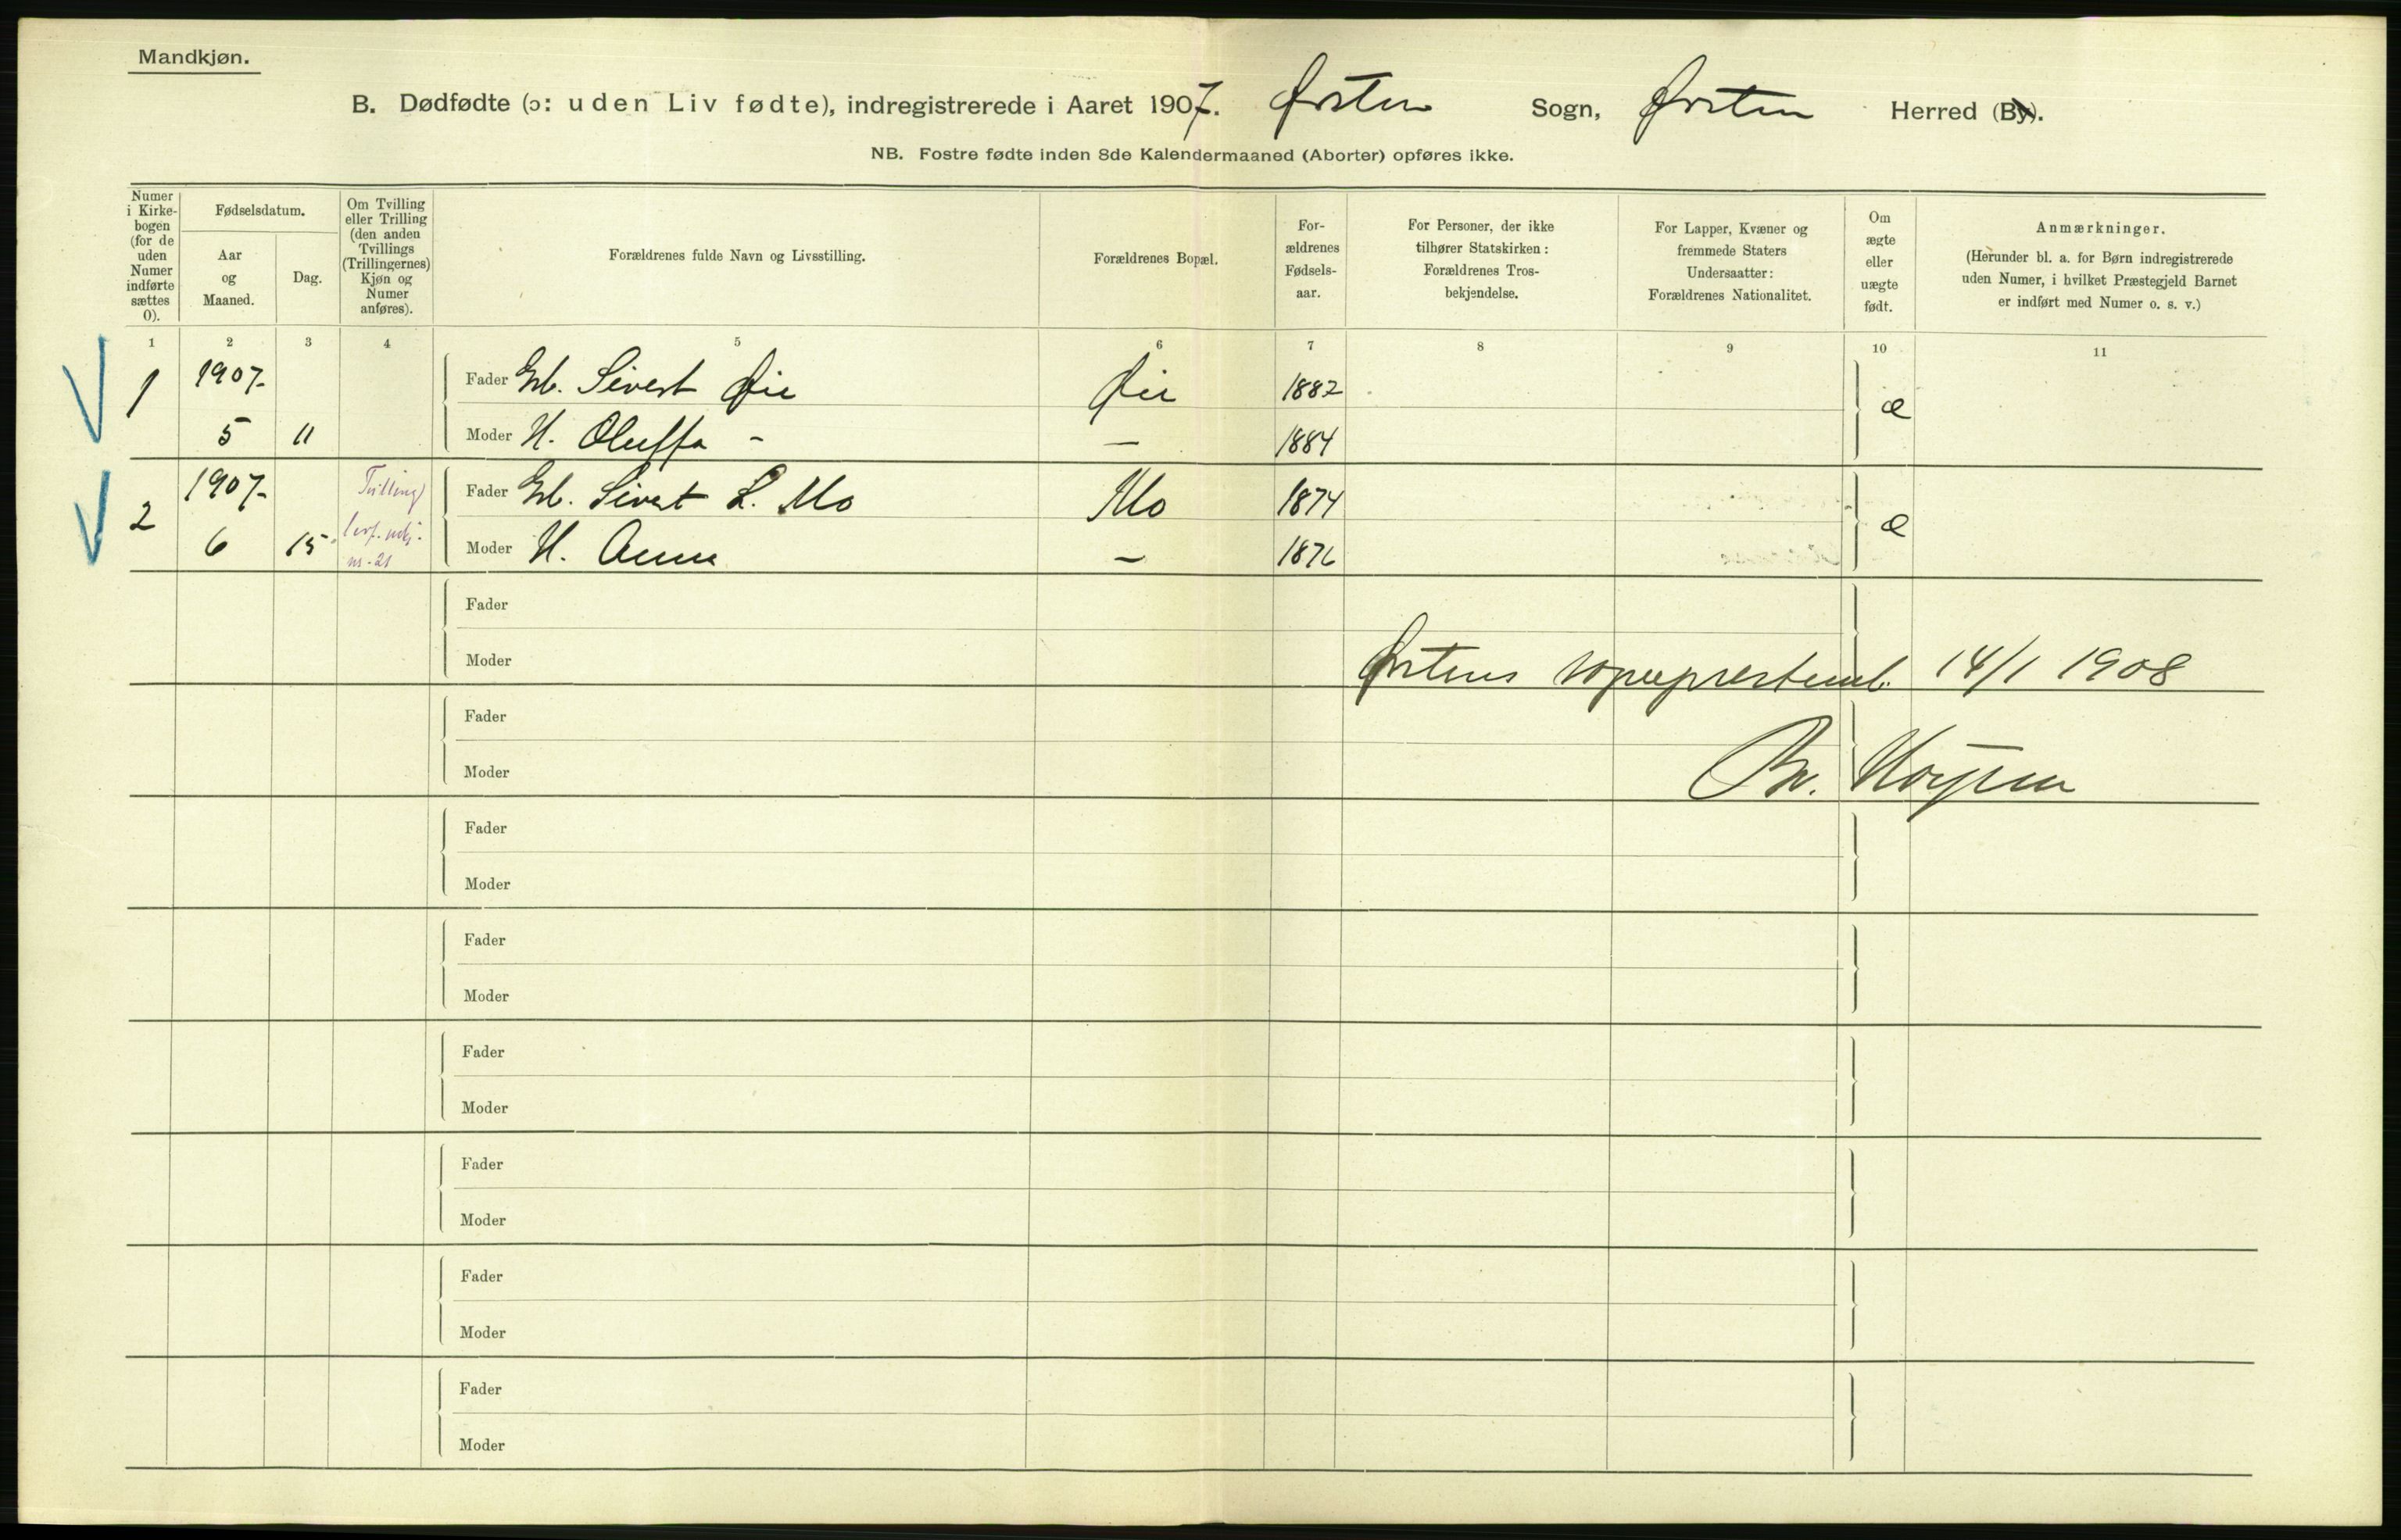 Mandkjøn.
B. Dødfødte (ɔ: uden Liv fødte), indregistrerede i Aaret 1907. Ørsten Sogn, Ørsten Herred (By).
NB. Fostre fødte inden 8de Kalendermaaned (Aborter) opføres ikke.
Numer i Kirke-bogen (for de uden Numer indførte sættes 0).
Fødselsdatum.
Aar og Maaned.
Dag.
Om Tvilling eller Trilling (den anden Tvillings (Trillingernes) Kjøn og Numer anføres).
Forældrenes fulde Navn og Livsstilling.
Forældrenes Bopæl.
For-ældrenes Fødsels-aar.
For Personer, der ikke tilhører Statskirken: Forældrenes Tros-bekjendelse.
For Lapper, Kvæner og fremmede Staters Undersaatter: Forældrenes Nationalitet.
Om ægte eller uægte født.
Anmærkninger.
(Herunder bl. a. for Børn indregistrerede uden Numer, i hvilket Præstegjeld Barnet er indført med Numer o. s. v.)
1 2 3 4 5 6 7 8 9 10 11
1 1907. Fader Gb. Sivert Øie Øie 1882 æ
5 11 Moder H. Oluffa - — 1884
2 1907. Tvilling Fader Gb. Sivert L. Mo Mo 1874 æ
6 15 nr. 21 Moder H. Anna — 1876
Fader
Moder Ørstens 14/1 1908
Fader
Moder
Fader
Moder
Fader
Moder
Fader
Moder
Fader
Moder
Fader
Moder
Fader
Moder